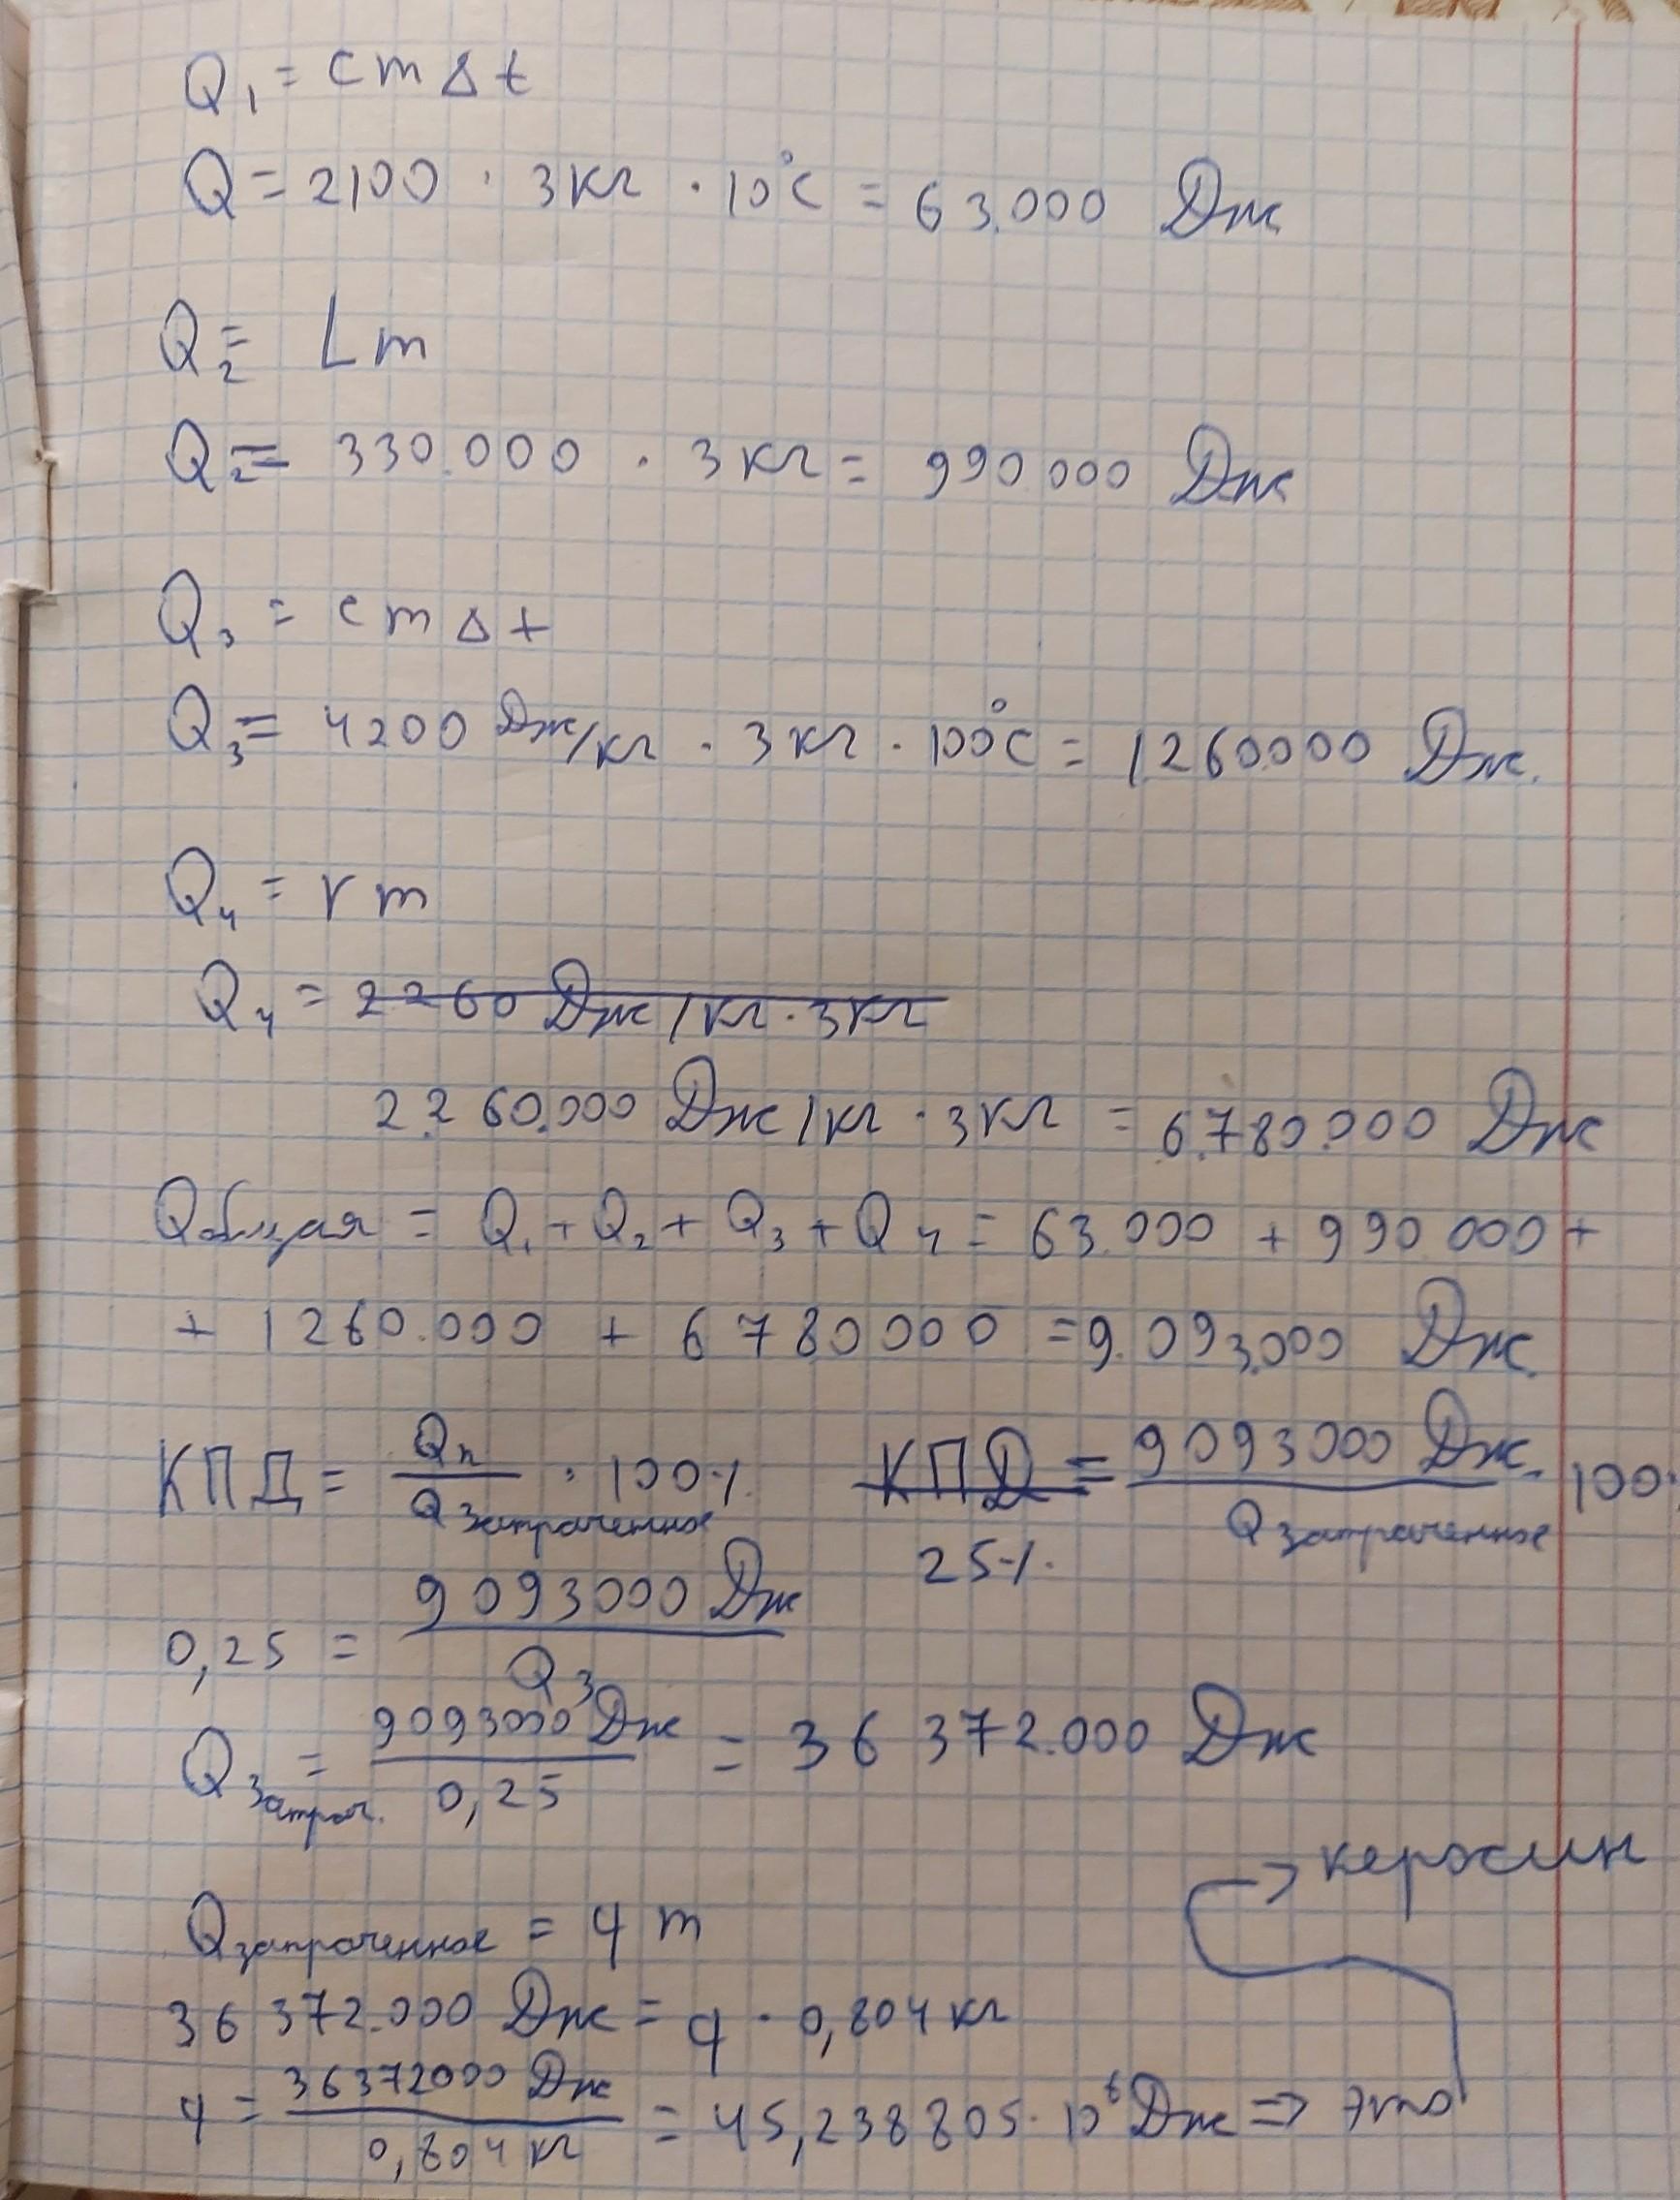 Q₁ = cmΔt
Q = 2100 · 3кг · 10°C = 63.000 Дж
Q₂ = Lm
Q₂ = 330.000 · 3кг = 990.000 Дж
Q₃ = cmΔt
Q₃ = 4200 Дж/кг · 3кг · 100°C = 1.260.000 Дж.
Q₄ = rm
Q₄ = 2260 Дж/кг · 3кг
2.260.000 Дж/кг · 3кг = 6.780.000 Дж
Qобщая = Q₁ + Q₂ + Q₃ + Q₄ = 63.000 + 990.000 +
+ 1260.000 + 6780000 = 9.093.000 Дж.
КПД = Qп / Qзатраченное · 100% КПД = 9093000 Дж / Qзатраченное · 100%
25%
0,25 = 9093000 Дж / Qз
Qзатрач. = 9093000 Дж / 0,25 = 36 372.000 Дж
керосин
Qзатраченное = qm
36 372.000 Дж = q · 0,804 кг
q = 36372000 Дж / 0,804 кг = 45,238805 · 10⁶ Дж => это